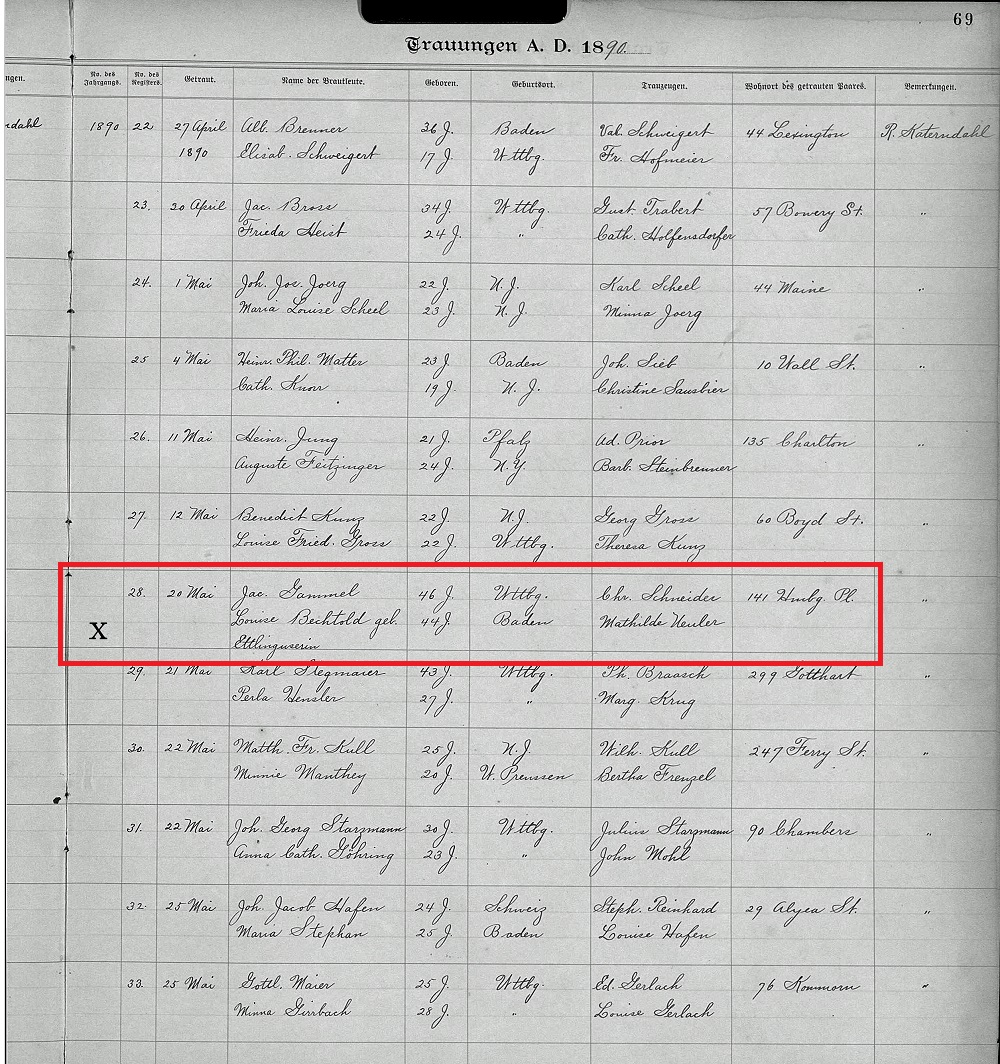 69
Trauungen A. D. 1890.
ngen. No. des Jahrgangs. No. des Registers. Getraut. Name der Brautleute. Geboren. Geburtsort. Trauzeugen. Wohnort des getrauten Paares. Bemerkungen.
ndahl 1890 22 27 April Alb. Brenner 36 J. Baden Val. Schweigert 44 Lexington R. Katerndahl
1890 Elisab. Schweigert 17 J. Wttbg. Fr. Hofmeier
23. 20 April Jac. Bross 34 J. Wttbg. Gust. Trabert 57 Bowery St. "
Frieda Heist 24 J. " Cath. Holfensdorfer
24. 1 Mai Joh. Jos. Joerg 22 J. N. J. Karl Scheel 44 Maine "
Maria Louise Scheel 23 J. N. J. Minna Joerg
25 4 Mai Heinr. Phil. Matter 23 J. Baden Joh. Sieb 10 Wall St. "
Cath. Knorr 19 J. N. J. Christine Sausbier
26. 11 Mai Heinr. Jung 21 J. Pfalz Ad. Prior 135 Charlton "
Auguste Feitzinger 24 J. N. Y. Barb. Steinbrenner
27. 12 Mai Benedict Kunz 22 J. N. J. Georg Gross 60 Boyd St. "
Louise Fried. Gross 22 J. Wttbg. Theresa Kunz
28. 20 Mai Jac. Gammel 46 J. Wttbg. Chr. Schneider 141 Hmbg. Pl. "
X Louise Bechtold geb. 44 J. Baden Mathilde Neuler
Ettlinguserin
29. 21 Mai Karl Stegmaier 43 J. Wttbg. Ph. Braasch 299 Gotthart "
Perla Hensler 27 J. " Marg. Krug
30. 22 Mai Matth. Fr. Kull 25 J. N. J. Wilh. Kull 247 Ferry St. "
Minnie Manthey 20 J. W. Preussen Bertha Frenzel
31. 22 Mai Joh. Georg Starzmann 30 J. Wttbg. Julius Starzmann 90 Chambers "
Anna Cath. Göhring 23 J. " John Mohl
32. 25 Mai Joh. Jacob Hafen 24 J. Schweiz Steph. Reinhard 29 Alyea St. "
Maria Stephan 25 J. Baden Louise Hafen
33. 25 Mai Gottl. Maier 25 J. Wttbg. Ed. Gerlach 76 Kommorn "
Minna Girrbach 28 J. " Louise Gerlach